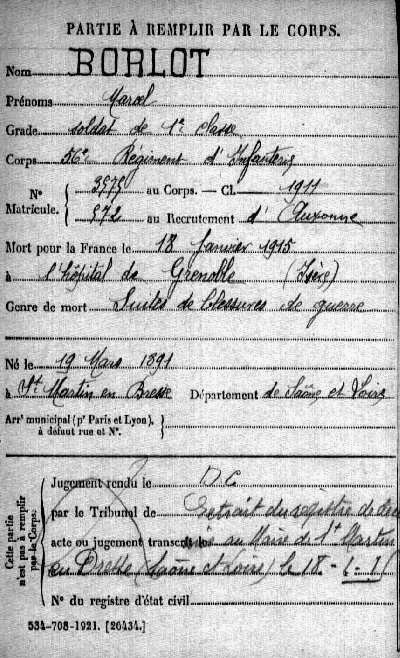 PARTIE À REMPLIR PAR LE CORPS.
Nom BORLOT
Prénoms Marcel
Grade soldat de 1e classe
Corps 56e Régiment d'Infanterie
N° Matricule. { 3575 au Corps. — Cl. 1911
572 au Recrutement d'Auxonne
Mort pour la France le 18 Janvier 1915
à l'hôpital de Grenoble (Isère)
Genre de mort Suites de blessures de guerre
Né le 19 Mars 1891
à St Martin en Bresse Département de Saône et Loire
Arrt municipal (pr Paris et Lyon), }
à défaut rue et N°.
Cette partie n'est pas à remplir par le Corps.
Jugement rendu le D.C.
par le Tribunal de Extrait du registre de
acte ou jugement transcrit le au Maire de St Martin
en Bresse (Saône et Loire) le 18 -
N° du registre d'état civil
534-708-1921. [26434.]